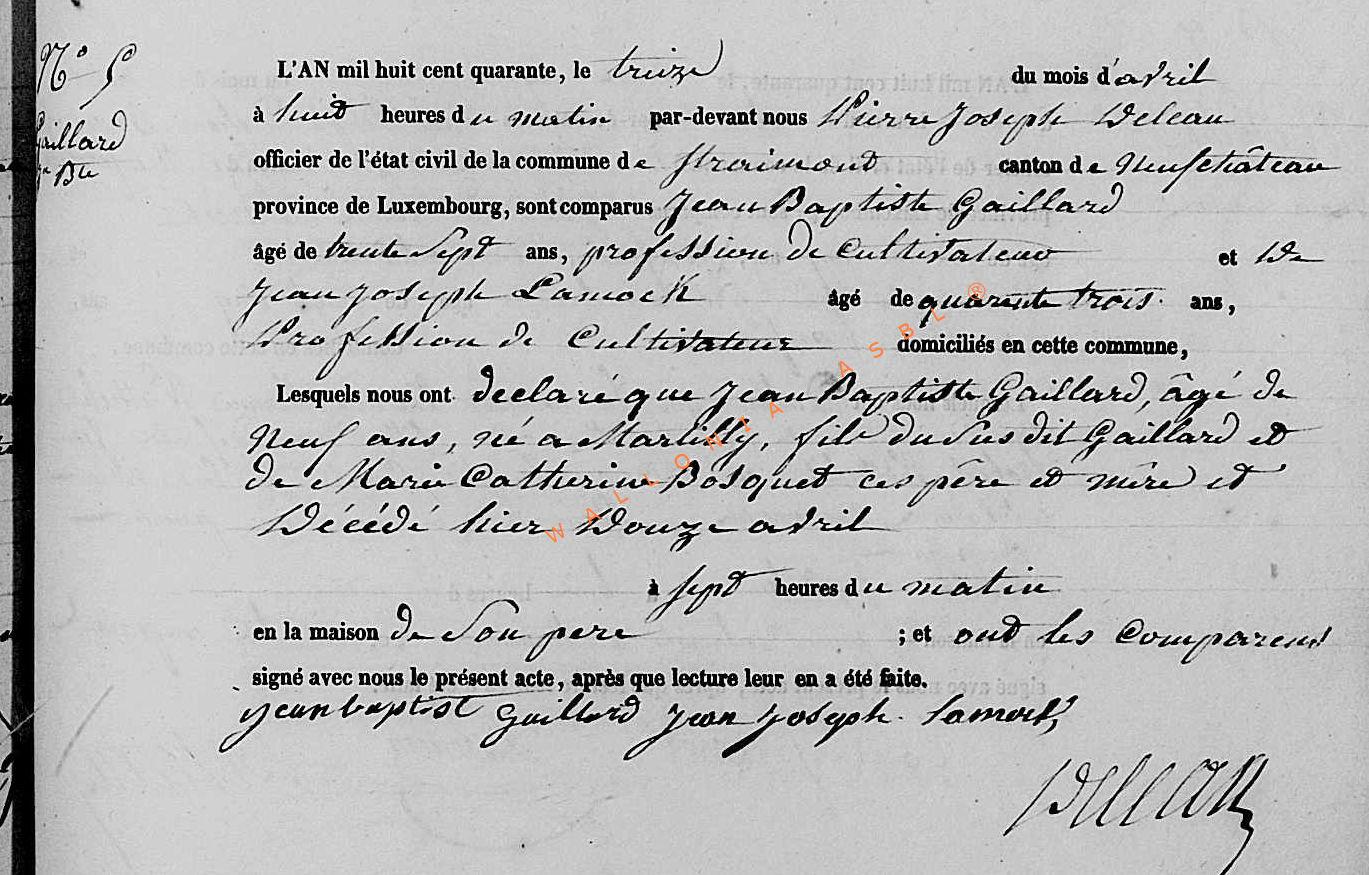 N° 5
Gaillard
Jn Bte
L'AN mil huit cent quarante, le treize du mois d'avril
à huit heures du matin par-devant nous Pierre Joseph Deleau
officier de l'état civil de la commune de Straimont canton de Neufchâteau
province de Luxembourg, sont comparus Jean Baptiste Gaillard
âgé de trente sept ans, profession de Cultivateur et de
Jean Joseph Lamock âgé de quarente trois ans,
Profession de Cultivateur domiciliés en cette commune,
Lesquels nous ont declaré que Jean Baptiste Gaillard, âgé de
Neuf ans, né a Martilly, fils du Sus dit Gaillard et
de Marie Catherine Bosquet ces père et mère et
Décédé hier Douze avril
à sept heures du matin
en la maison de Son pere ; et ont les Comparent
signé avec nous le présent acte, après que lecture leur en a été faite.
jean baptist Gaillard jean joseph Lamock
Deleau
WALLONIA ASBL ®